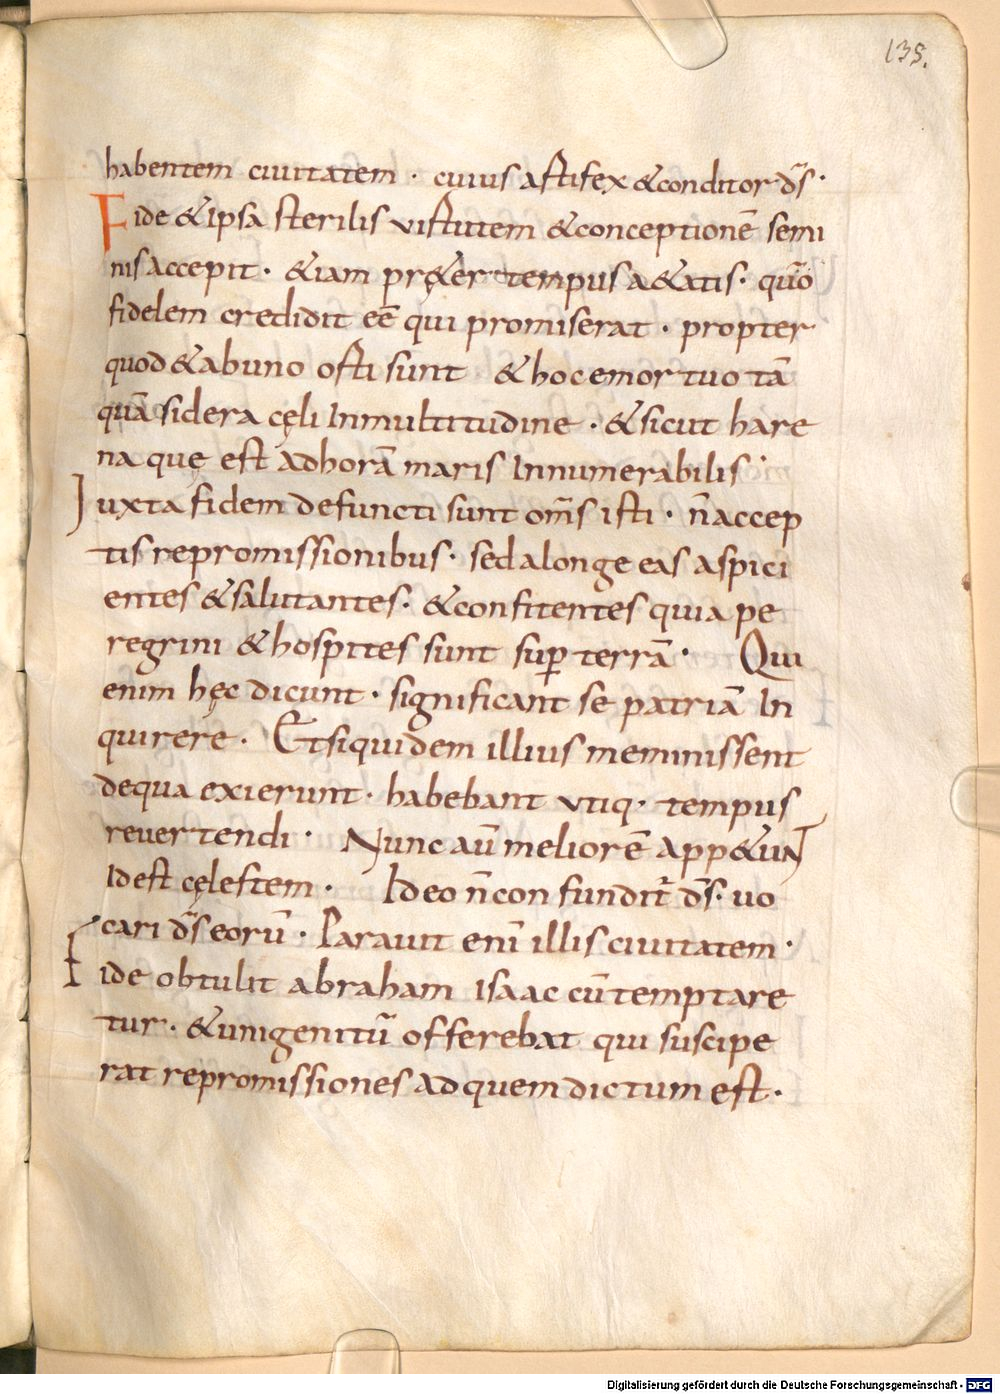 135.
habentem ciuitatem · cuius artifex &conditor d̄s ·
Fide &ipsa sterilis virtutem &conceptionē semi
nis accepit · &iam pr&̨er tempus a&atis · quō
fidelem credidit eē qui promiserat · propter
quod &abuno orti sunt &hoc emortuo tā
quā sidera cęli Inmultitudine · &sicut hare
na quę est adhorā maris Innumerabilis ·
Iuxta fidem defuncti sunt om̄s isti · n̄ accep
tis repromissionibus · sed alonge eas aspici
entes &salutantes · &confitentes quia pe
regrini &hospites sunt sup̄ terrā · Qui
enim hęc dicunt · significant se patriā In
quirere · Etsiquidem illius meminissent
dequa exierunt · habebant vtiq· tempus
reuertendi · Nunc aū meliorē app&unt
Idest cęlestem · Ideo n̄ confundit̄ d̄s · uo
cari d̄s eorū · Parauit enī illis ciuitatem ·
Fide obtulit abraham isaac cū temptare
tur · &unigenitū offerebat qui suscipe
rat repromissiones ad quem dictum est ·
Digitalisierung gefördert durch die Deutsche Forschungsgemeinschaft - DFG